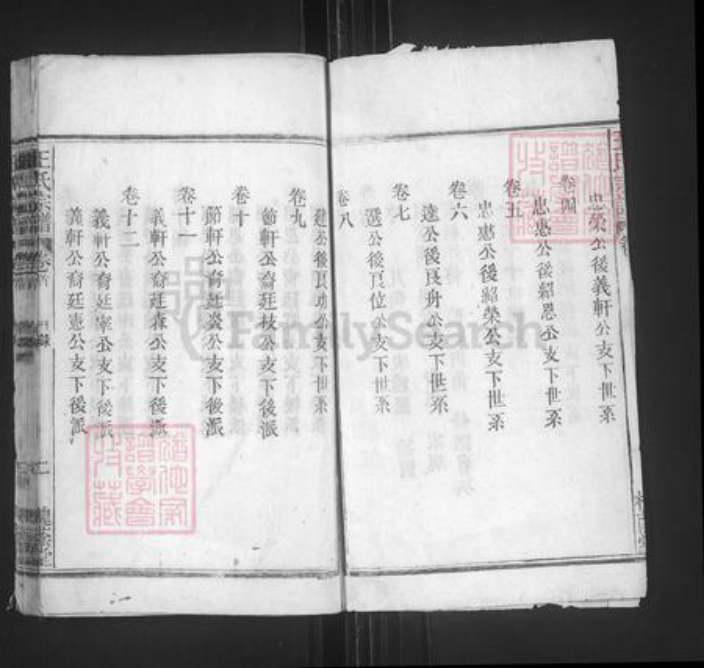 忠榮公後義軒公支下世系
卷四
忠惠公後紹恩公支下世系
卷五
忠惠公後紹榮公支下世系
卷六
達公後良舟公支下世系
卷七
選公後良位公支下世系
卷八
建公後良功公支下世系
卷九
節軒公裔廷枝公支下後派
卷十
節軒公裔廷燊公支下後派
卷十一
義軒公裔廷森公支下後派
卷十二
義軒公裔廷宰公支下後派
義軒公裔廷憲公支下後派
王氏宗譜
FamilySearch